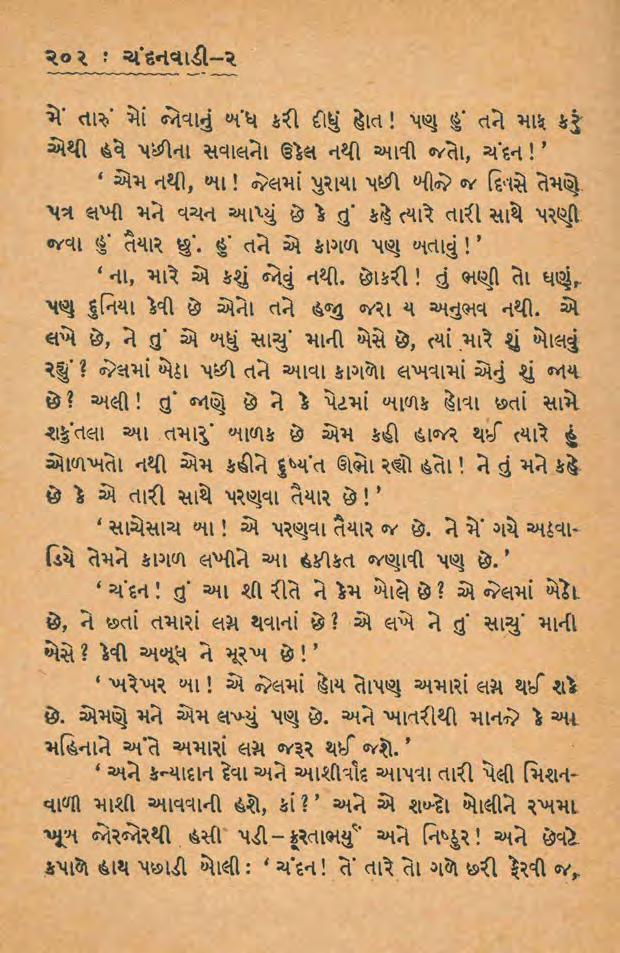 ૨૦૨ : ચંદનવાડી–૨
મેં તારું મોં જોવાનું બંધ કરી દીધું હોત! પણ હું તને માફ કરું
એથી હવે પછીના સવાલનો ઉકેલ નથી આવી જતો, ચંદન!’
‘ એમ નથી, બા! જેલમાં પુરાયા પછી બીજે જ દિવસે તેમણે
પત્ર લખી મને વચન આપ્યું છે કે તું કહે ત્યારે તારી સાથે પરણી
જવા હું તૈયાર છું. હું તને એ કાગળ પણ બતાવું!’
‘ના, મારે એ કશું જોવું નથી. છોકરી! તું ભણી તો ઘણું,
પણ દુનિયા કેવી છે એનો તને હજી જરા ય અનુભવ નથી. એ
લખે છે, ને તું એ બધું સાચું માની બેસે છે, ત્યાં મારે શું બોલવું
રહ્યું? જેલમાં બેઠા પછી તને આવા કાગળો લખવામાં એનું શું જાય
છે? અલી! તું જાણે છે ને કે પેટમાં બાળક હોવા છતાં સામે
શકુંતલા આ તમારું બાળક છે એમ કહી હાજર થઈ ત્યારે હું
ઓળખતો નથી એમ કહીને દુષ્યંત ઊભો રહ્યો હતો! ને તું મને કહે
છે કે એ તારી સાથે પરણવા તૈયાર છે!’
‘સાચેસાચ બા! એ પરણવા તૈયાર જ છે. ને મેં ગયે અઠવા-
ડિયે તેમને કાગળ લખીને આ હકીકત જણાવી પણ છે.’
‘ચંદન! તું આ શી રીતે ને કેમ બોલે છે? એ જેલમાં બેઠો
છે, ને છતાં તમારાં લગ્ન થવાનાં છે? એ લખે ને તું સાચું માની
બેસે? કેવી અબૂધ ને મૂરખ છે!’
‘ખરેખર બા! એ જેલમાં હોય તોપણ અમારાં લગ્ન થઈ શકે
છે. એમણે મને એમ લખ્યું પણ છે. અને ખાતરીથી માનજે કે આ
મહિનાને અંતે અમારાં લગ્ન જરૂર થઈ જશે.’
‘અને કન્યાદાન દેવા અને આશીર્વાદ આપવા તારી પેલી મિશન-
વાળી માશી આવવાની હશે, કાં?’ અને એ શબ્દો બોલીને રખમા
ખૂબ જોરજોરથી હસી પડી – ક્રૂરતાભર્યું અને નિષ્ઠુર! અને છેવટે
કપાળે હાથ પછાડી બોલી: ‘ચંદન! તેં તારે તો ગળે છરી ફેરવી જ,